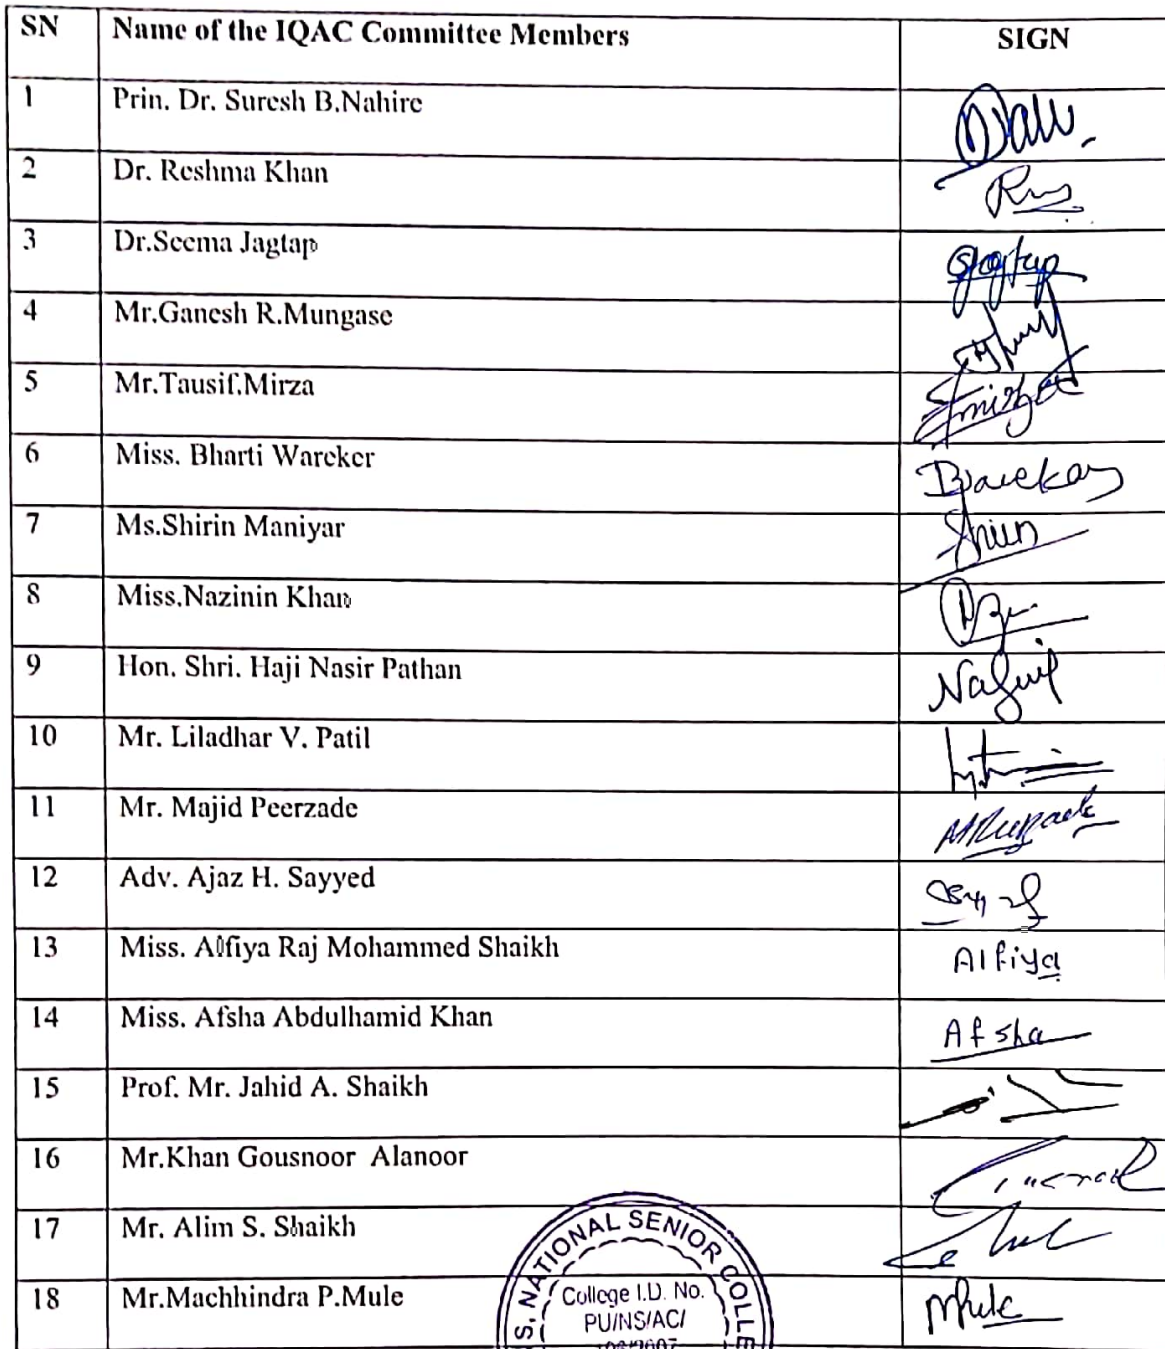 SN Name of the IQAC Committee Members SIGN
1 Prin. Dr. Suresh B.Nahire
2 Dr. Reshma Khan
3 Dr.Seema Jagtap Sjagtap
4 Mr.Ganesh R.Mungase
5 Mr.Tausif.Mirza
6 Miss. Bharti Wareker
7 Ms.Shirin Maniyar Shirin
8 Miss.Nazinin Khan
9 Hon. Shri. Haji Nasir Pathan
10 Mr. Liladhar V. Patil
11 Mr. Majid Peerzade
12 Adv. Ajaz H. Sayyed
13 Miss. Alfiya Raj Mohammed Shaikh Alfiya
14 Miss. Afsha Abdulhamid Khan Afsha
15 Prof. Mr. Jahid A. Shaikh
16 Mr.Khan Gousnoor Alanoor
17 Mr. Alim S. Shaikh
18 Mr.Machhindra P.Mule Mule
S, NATIONAL SENIOR COLLE
College I.D. No.
PU/NS/AC/